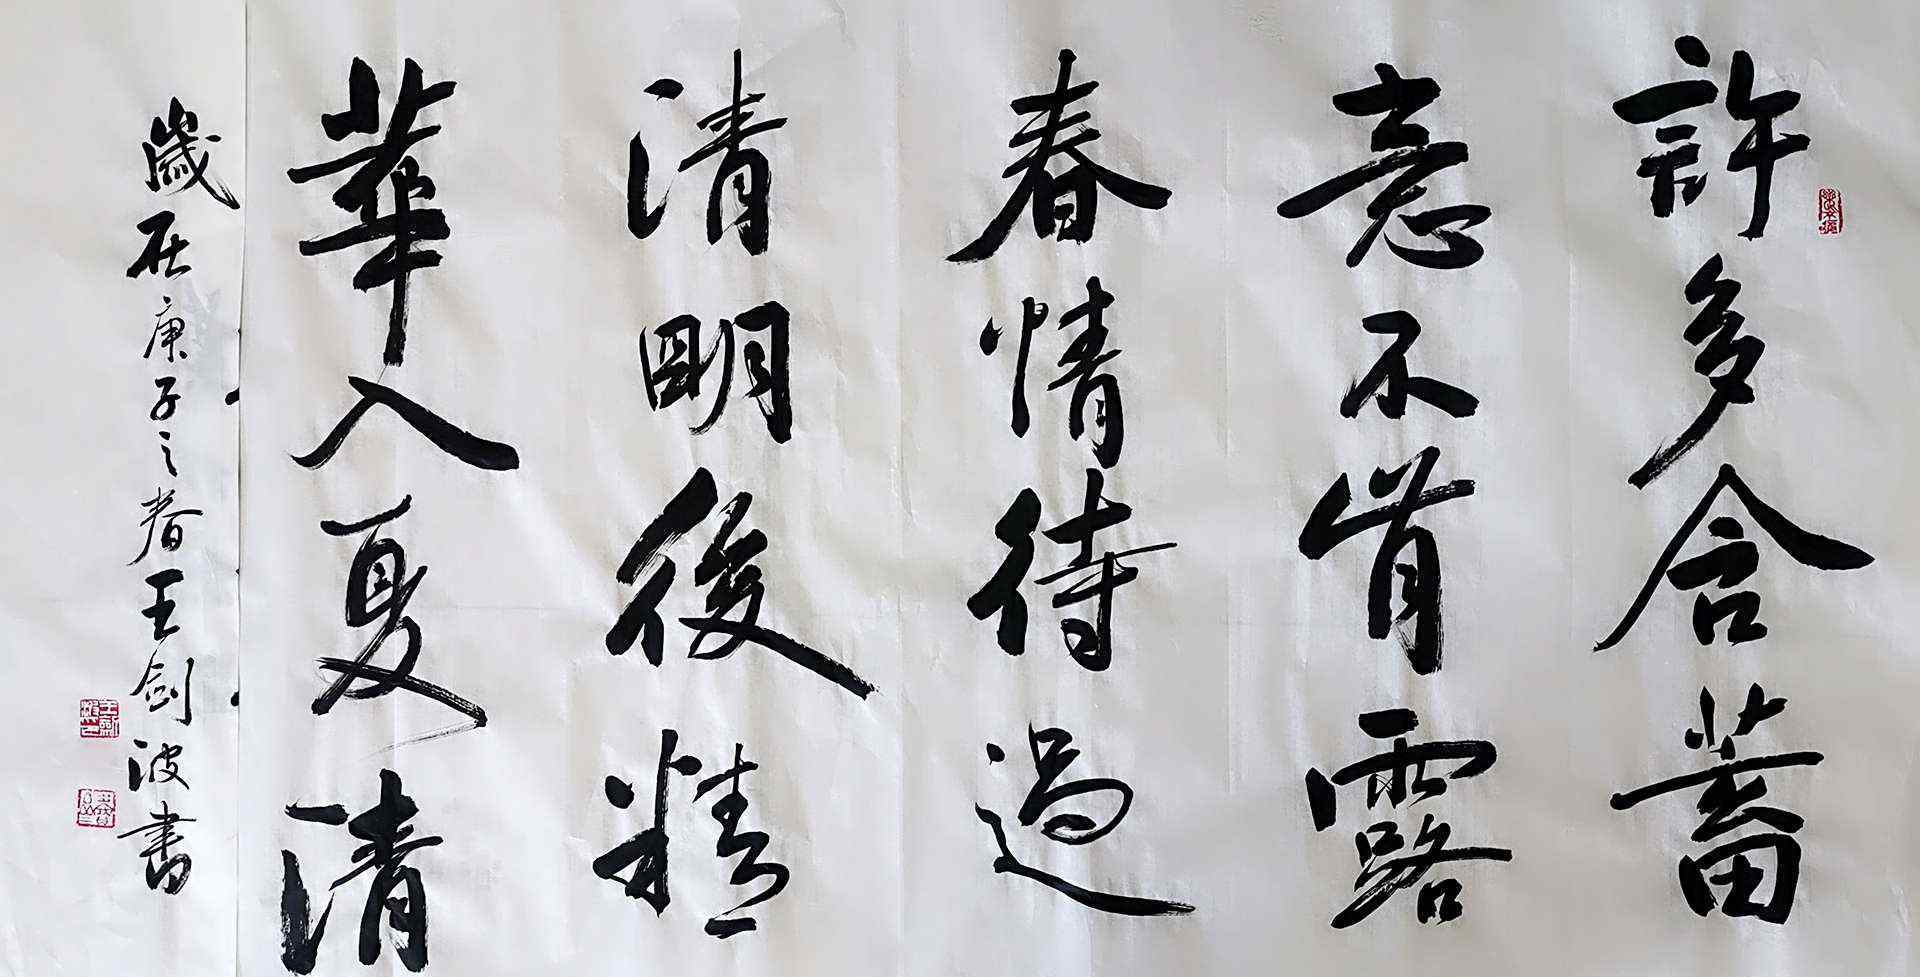 許多含蓄
意不肯露
春情待過
清明後精
華入夏清
歲在庚子之春王劍波書